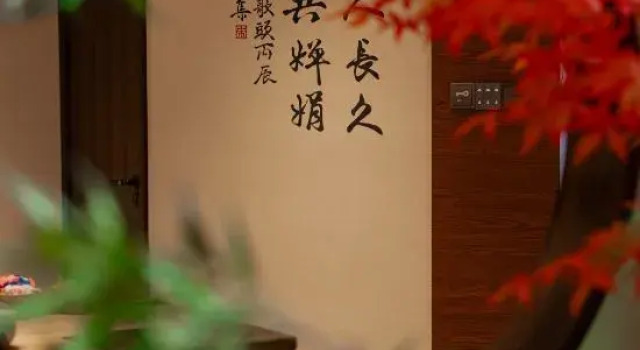 人長久
共嬋娟
歌頭丙辰
集